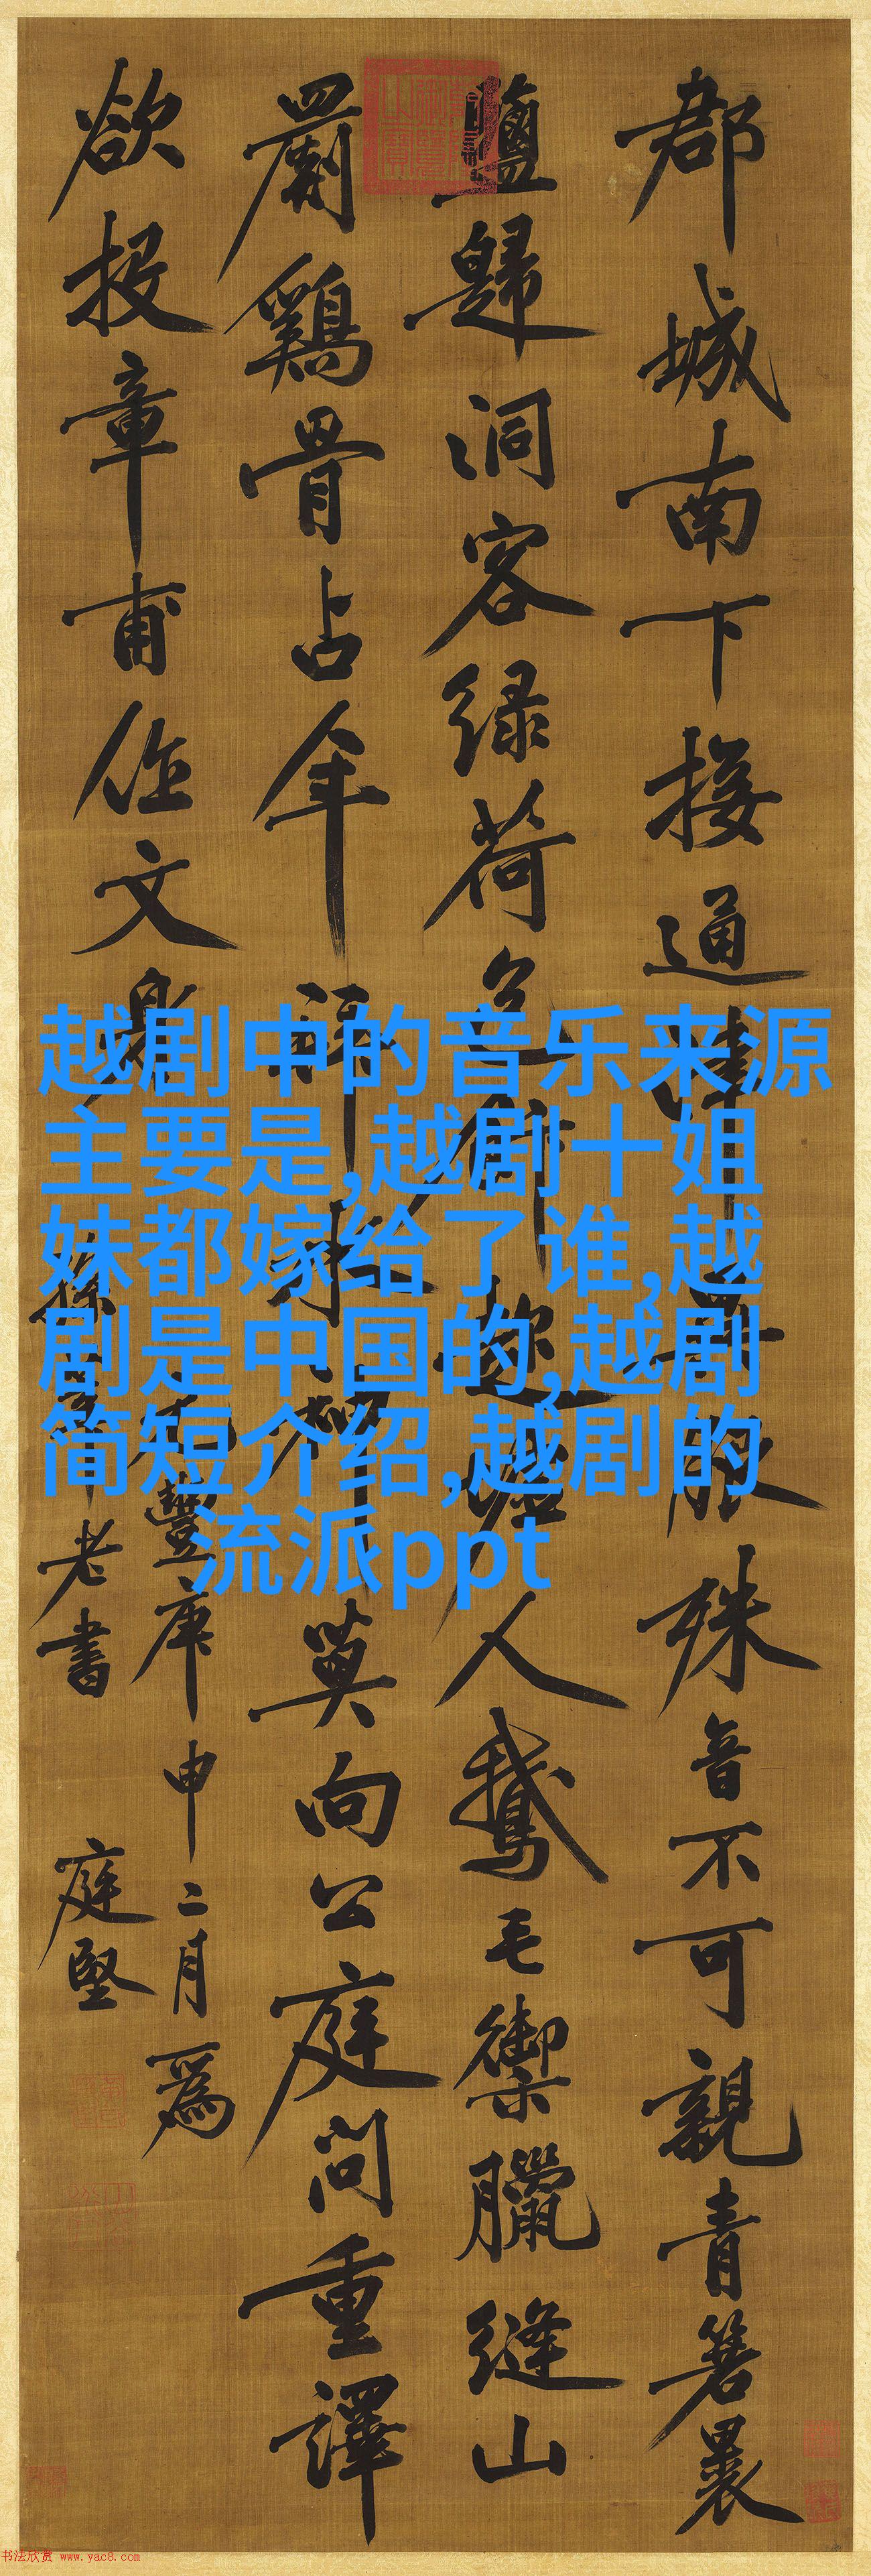 郡城南下接通津異服殊音不可親青箬裹
鹽歸洞客緑荷包飯趁虛人鵝毛禦臘縫山
罽鷄骨占年拜水神莫向公庭問重譯
欲投章甫作文身
豐庚申二月爲
孫莘老書 庭堅
越剧中的音乐来源
主要是,越剧十姐
妹都嫁给了谁,越
剧是中国的,越剧
简短介绍,越剧的
流派ppt
书法欣赏 www.yac8.com